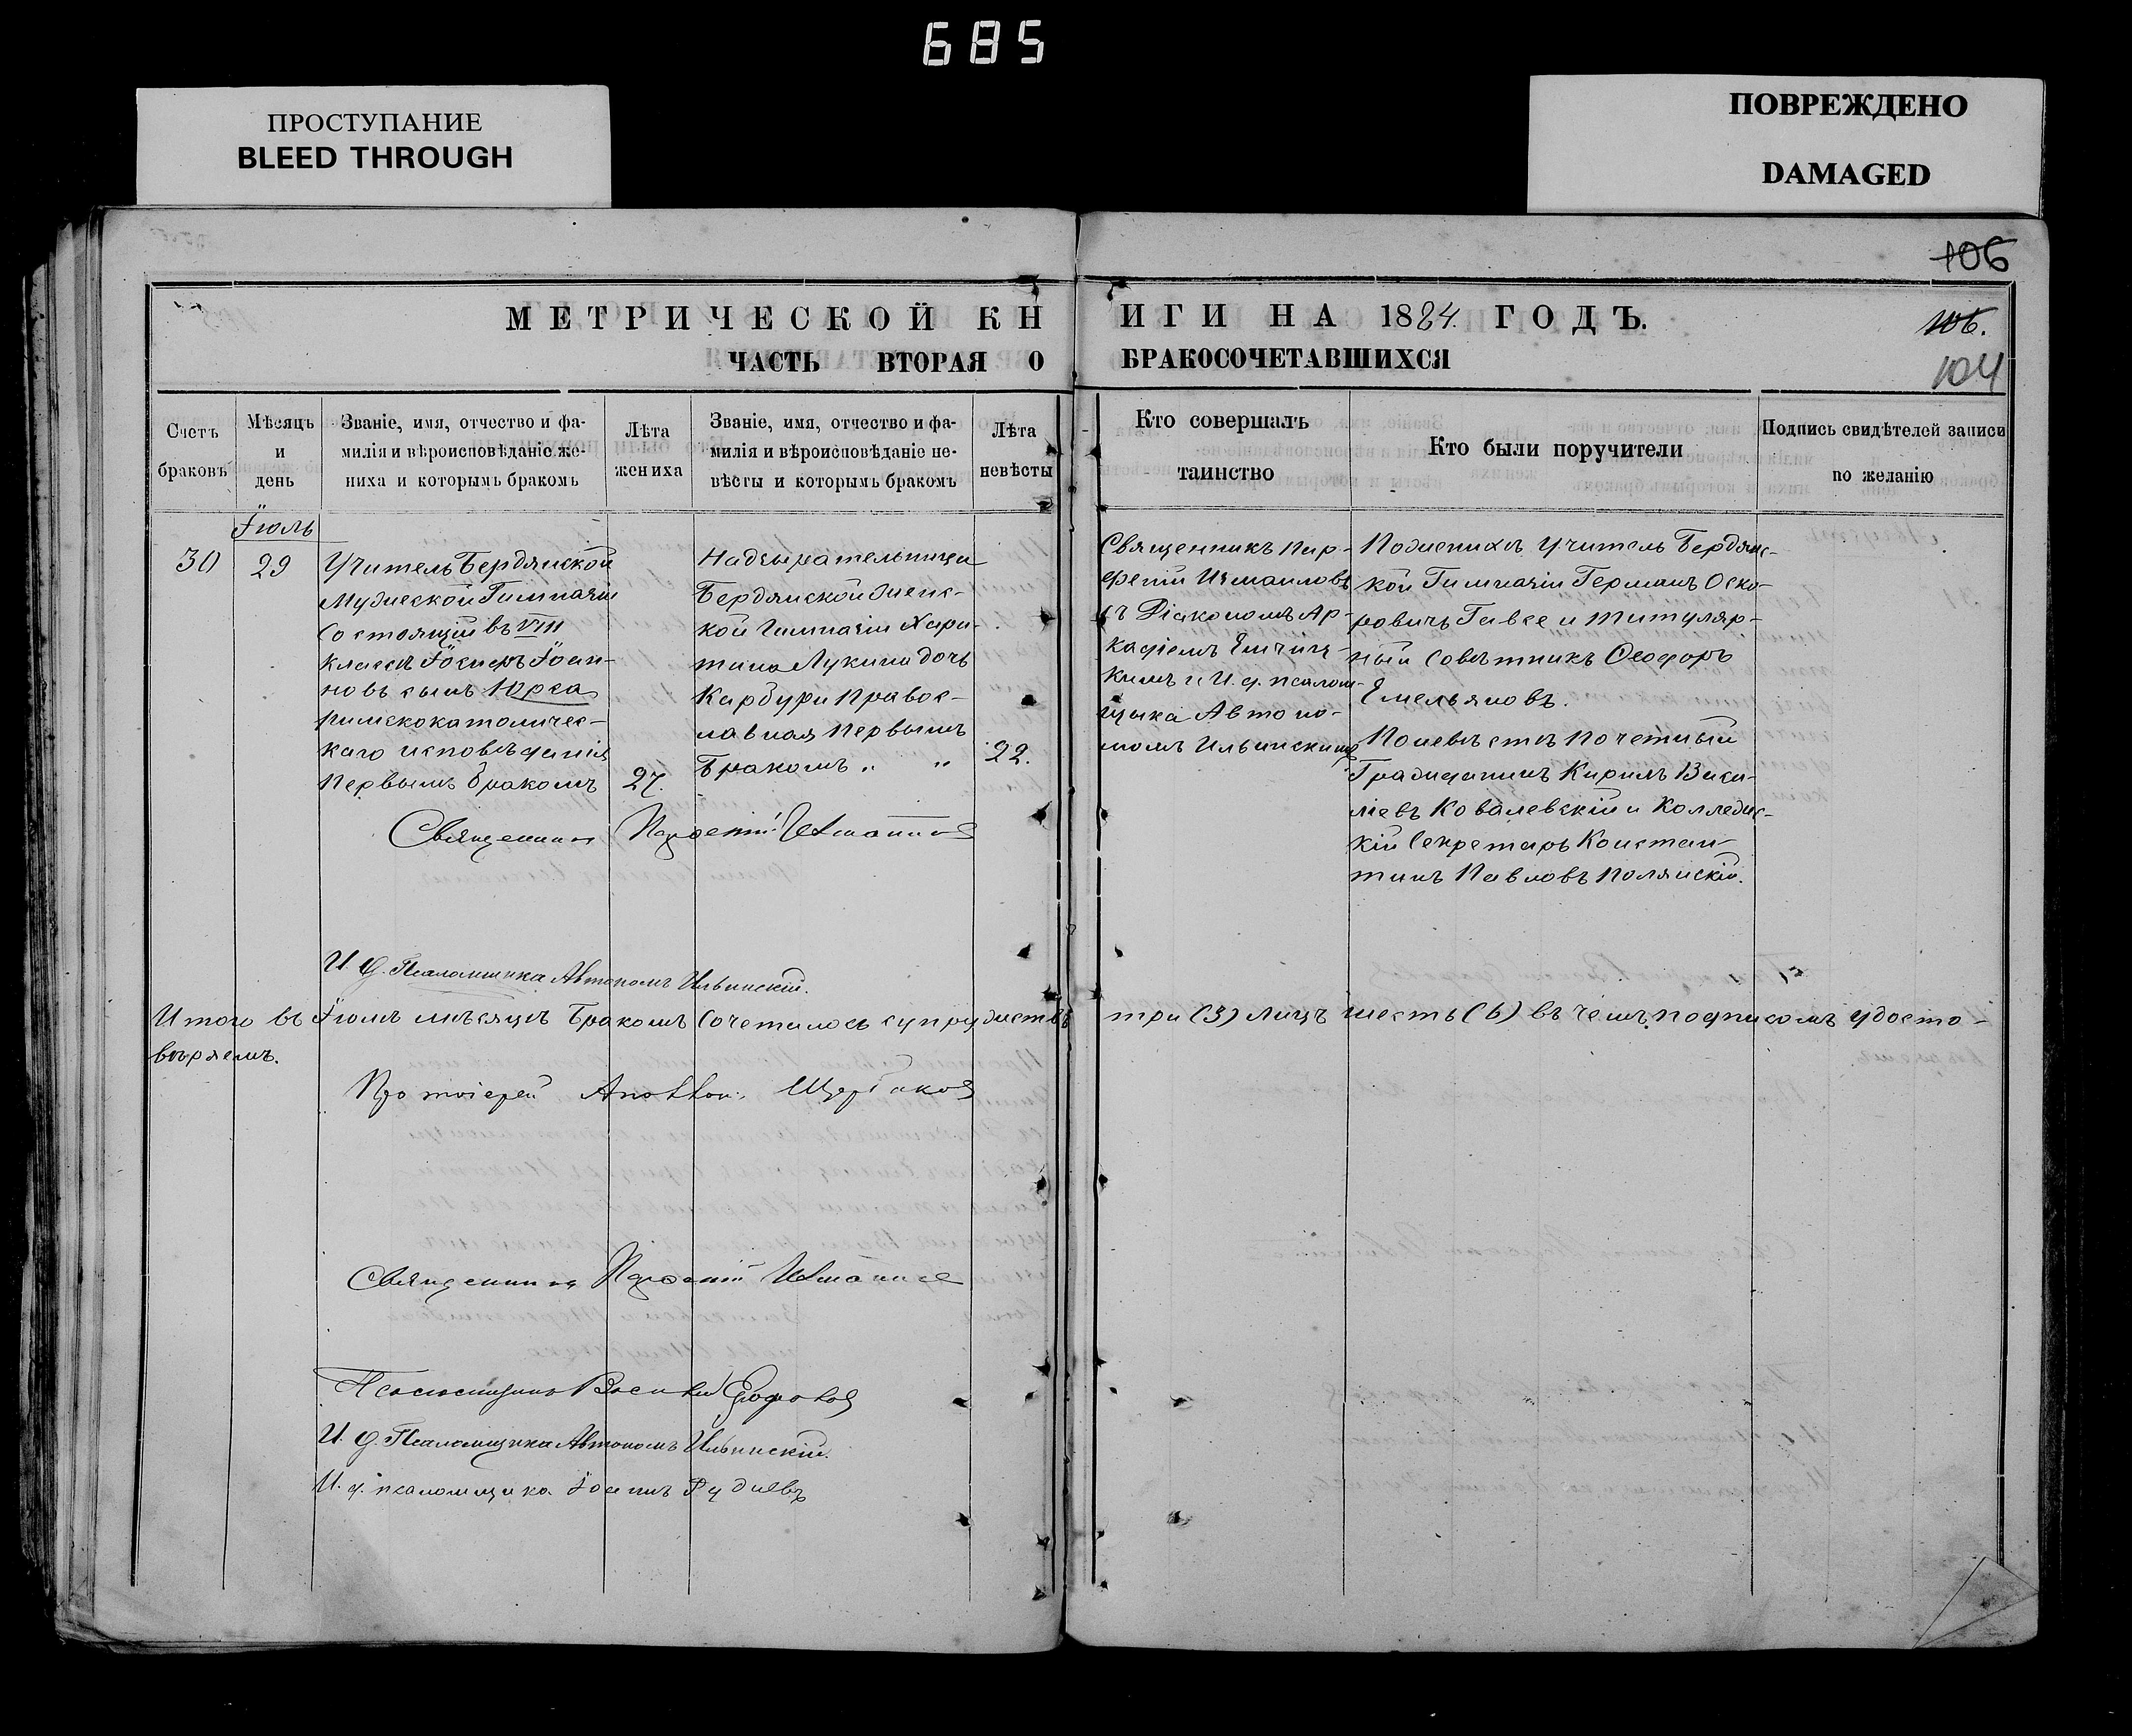 685
ПРОСТУПАНИЕ
BLEED THROUGH
ПОВРЕЖДЕНО
DAMAGED
106
106.
104
МЕТРИЧЕСКОЙ КНИГИ НА 1884. ГОДЪ.
ЧАСТЬ ВТОРАЯ О БРАКОСОЧЕТАВШИХСЯ
Счетъ
браковъ
Мѣсяцъ
и
день
Званіе, имя, отчество и фа-
милія и вѣроисповѣданіе же-
ниха и которымъ бракомъ
Лѣта
жениха
Званіе, имя, отчество и фа-
милія и вѣроисповѣданіе не-
вѣсты и которымъ бракомъ
Лѣта
невѣсты
Кто совершалъ
таинство
Кто были поручители
Подпись свидѣтелей записи
по желанію
30
Іюль
29
Учитель Бердянской
Мужеской Гимназіи
Состоящій въ VIII
классѣ Іосифъ Іоан-
новъ сынъ Юрса
римскокатоличес-
каго исповѣданія
Первымъ бракомъ
27.
Надзырательница
Бердянской Женс-
кой Гимназіи Хари-
тина Лукина дочь
Карбури Правос-
лавная Первымъ
Бракомъ „ „
22.
Священникъ Пар-
феній Измаиловъ
съ Діакономъ Ар-
кадіемъ
кимъ и И. д. псалом-
щыка Автоно-
момъ Ильинскимъ
По женихѣ Учитель Бердянс-
кой Гимназіи Германъ Оска-
ровичъ Гавсе и титуляр-
ный Совѣтникъ Ѳеодоръ
Емельяновъ.
По невѣстѣ Почетный
Гражданинъ Кирилъ Васи-
ліевъ Ковалевскій и Коллежс-
кій Секретарь Констан-
тинъ Павловъ Полянскій.
Священникъ Парфеній Измаиловъ
И. д. Псаломщика Автономъ Ильинскій.
Итого въ Іюлѣ мѣсяцѣ Бракомъ Сочеталось супружествъ три (3) Лицъ шесть (6) въ чемъ подписомъ удосто-
вѣряемъ.
Протоіерей Аполлон: Щербаковъ
Священникъ Парфеній Измаиловъ
Псаломщикъ Василій
И. д. Псаломщика Автономъ Ильинскій.
И. д. псаломщика Іоаннъ Рудневъ